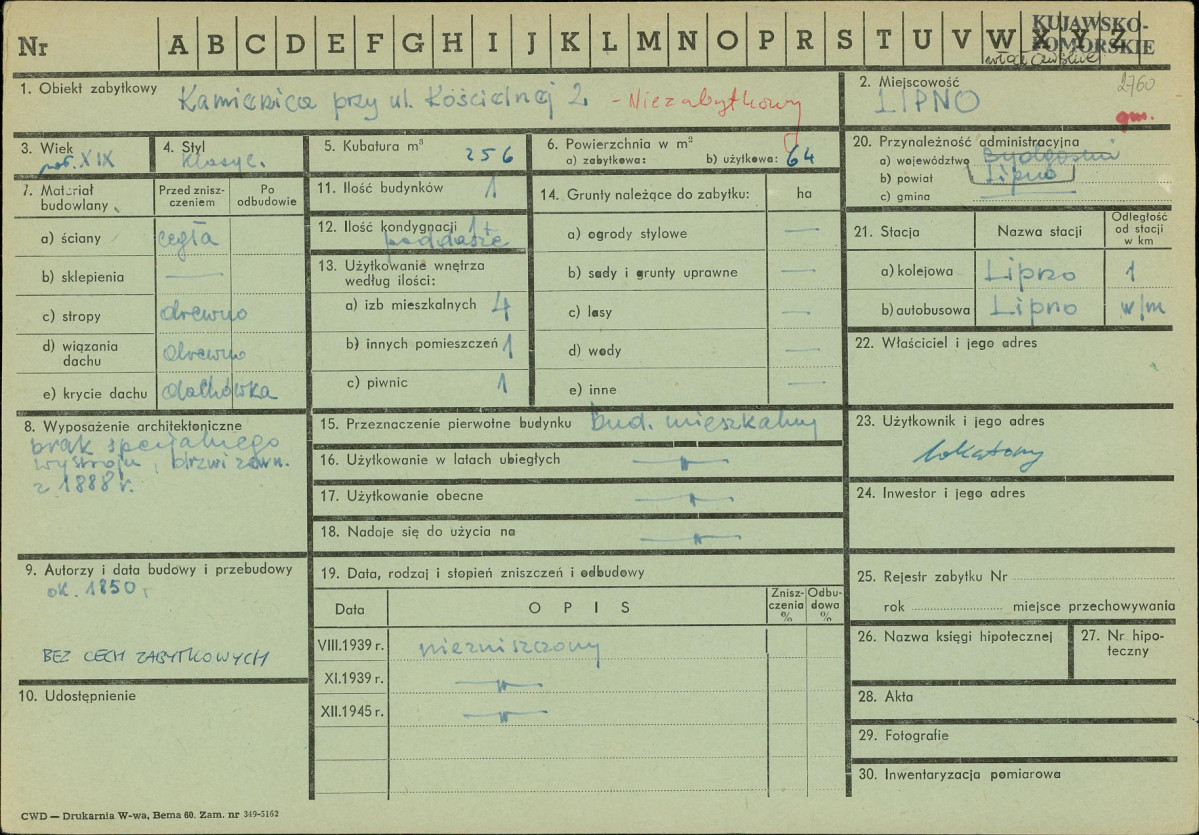 Nr A B C D E F G H I J K L M N O P R S T U V W X Y Z
KUJAWSKO-
POMORSKIE
1. Obiekt zabytkowy Kamienica przy ul. Kościelnej 2. - Niezabytkowy
2. Miejscowość 2760
LIPNO
gm.
3. Wiek
poł. XIX
4. Styl
klasyc.
5. Kubatura m³ 256
6. Powierzchnia w m²
a) zabytkowa: b) użytkowa: 64
7. Materiał budowlany
Przed zniszczeniem
Po odbudowie
a) ściany cegła
b) sklepienia —
c) stropy drewno
d) wiązania dachu drewno
e) krycie dachu dachówka
8. Wyposażenie architektoniczne
brak specjalnego
wystroju, drzwi zewn.
z 1888 r.
9. Autorzy i data budowy i przebudowy
ok. 1850 r.
BEZ CECH ZABYTKOWYCH
10. Udostępnienie
11. Ilość budynków 1.
12. Ilość kondygnacji 1+
poddasze
13. Użytkowanie wnętrza
według ilości:
a) izb mieszkalnych 4
b) innych pomieszczeń 1
c) piwnic 1
14. Grunty należące do zabytku: ha
a) ogrody stylowe —
b) sady i grunty uprawne —
c) lasy —
d) wody —
e) inne —
15. Przeznaczenie pierwotne budynku bud. mieszkalny
16. Użytkowanie w latach ubiegłych —"—
17. Użytkowanie obecne —"—
18. Nadaje się do użycia na —"—
19. Data, rodzaj i stopień zniszczeń i odbudowy
Data
O P I S
Zniszczenia %
Odbudowa %
VIII.1939 r. niezniszczony
XI.1939 r. —"—
XII.1945 r. —"—
20. Przynależność administracyjna
a) województwo Bydgoski
b) powiat Lipno
c) gmina
21. Stacja
Nazwa stacji
Odległość od stacji w km
a) kolejowa Lipno 1
b) autobusowa Lipno w/m
22. Właściciel i jego adres
23. Użytkownik i jego adres
lokatorzy
24. Inwestor i jego adres
25. Rejestr zabytku Nr
rok miejsce przechowywania
26. Nazwa księgi hipotecznej
27. Nr hipoteczny
28. Akta
29. Fotografie
30. Inwentaryzacja pomiarowa
CWD — Drukarnia W-wa, Bema 60. Zam. nr 349-5162